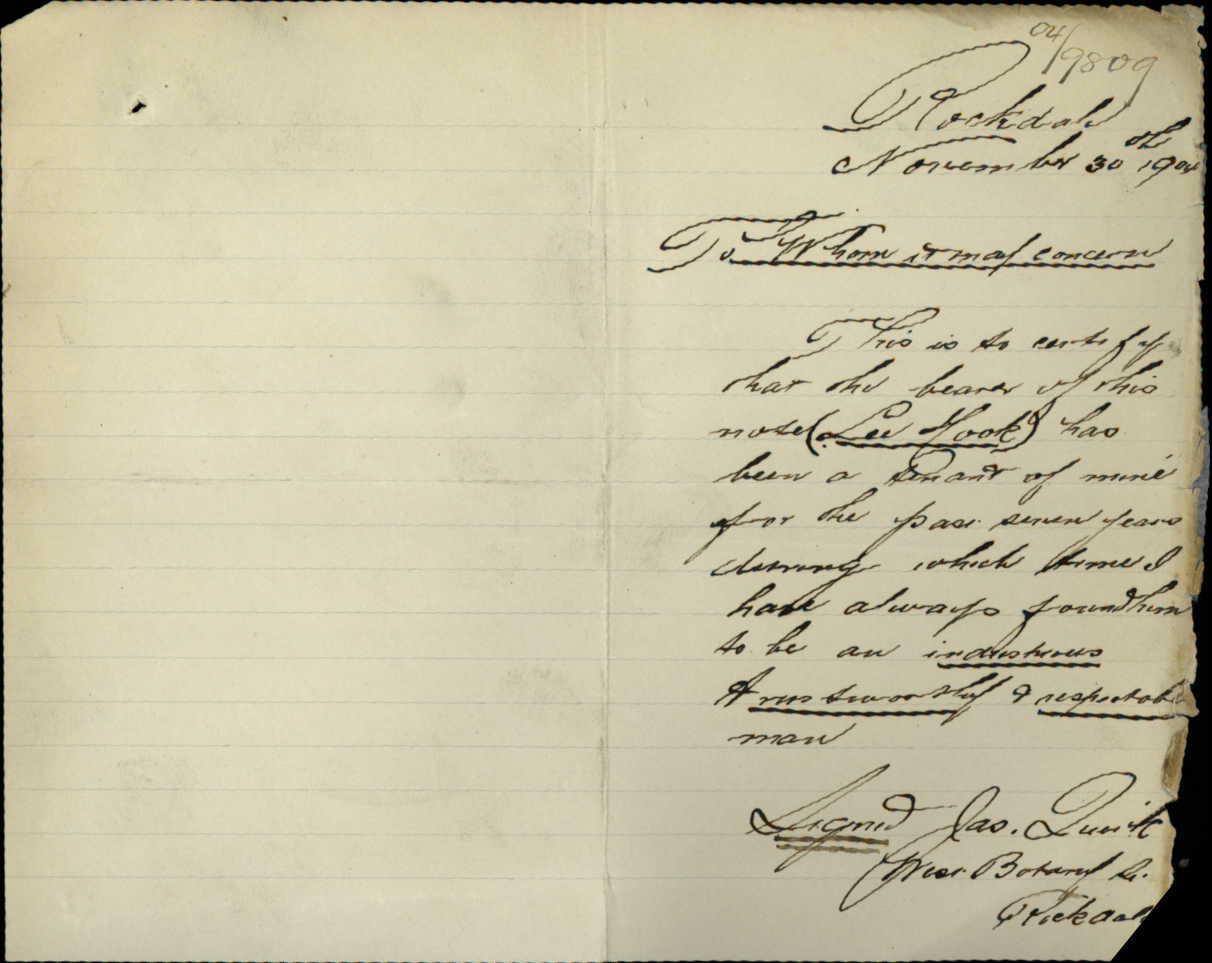 04/9809
Rockdale
November 30th 1904
To Whom it may concern
This is to certify
that the bearer of this
note (Lee Hook) has
been a tenant of mine
for the past seven years
during which time I
have always found him
to be an industrious
trustworthy & respectable
man
Signed Jas. Quirk
West Botany St.
Rockdale